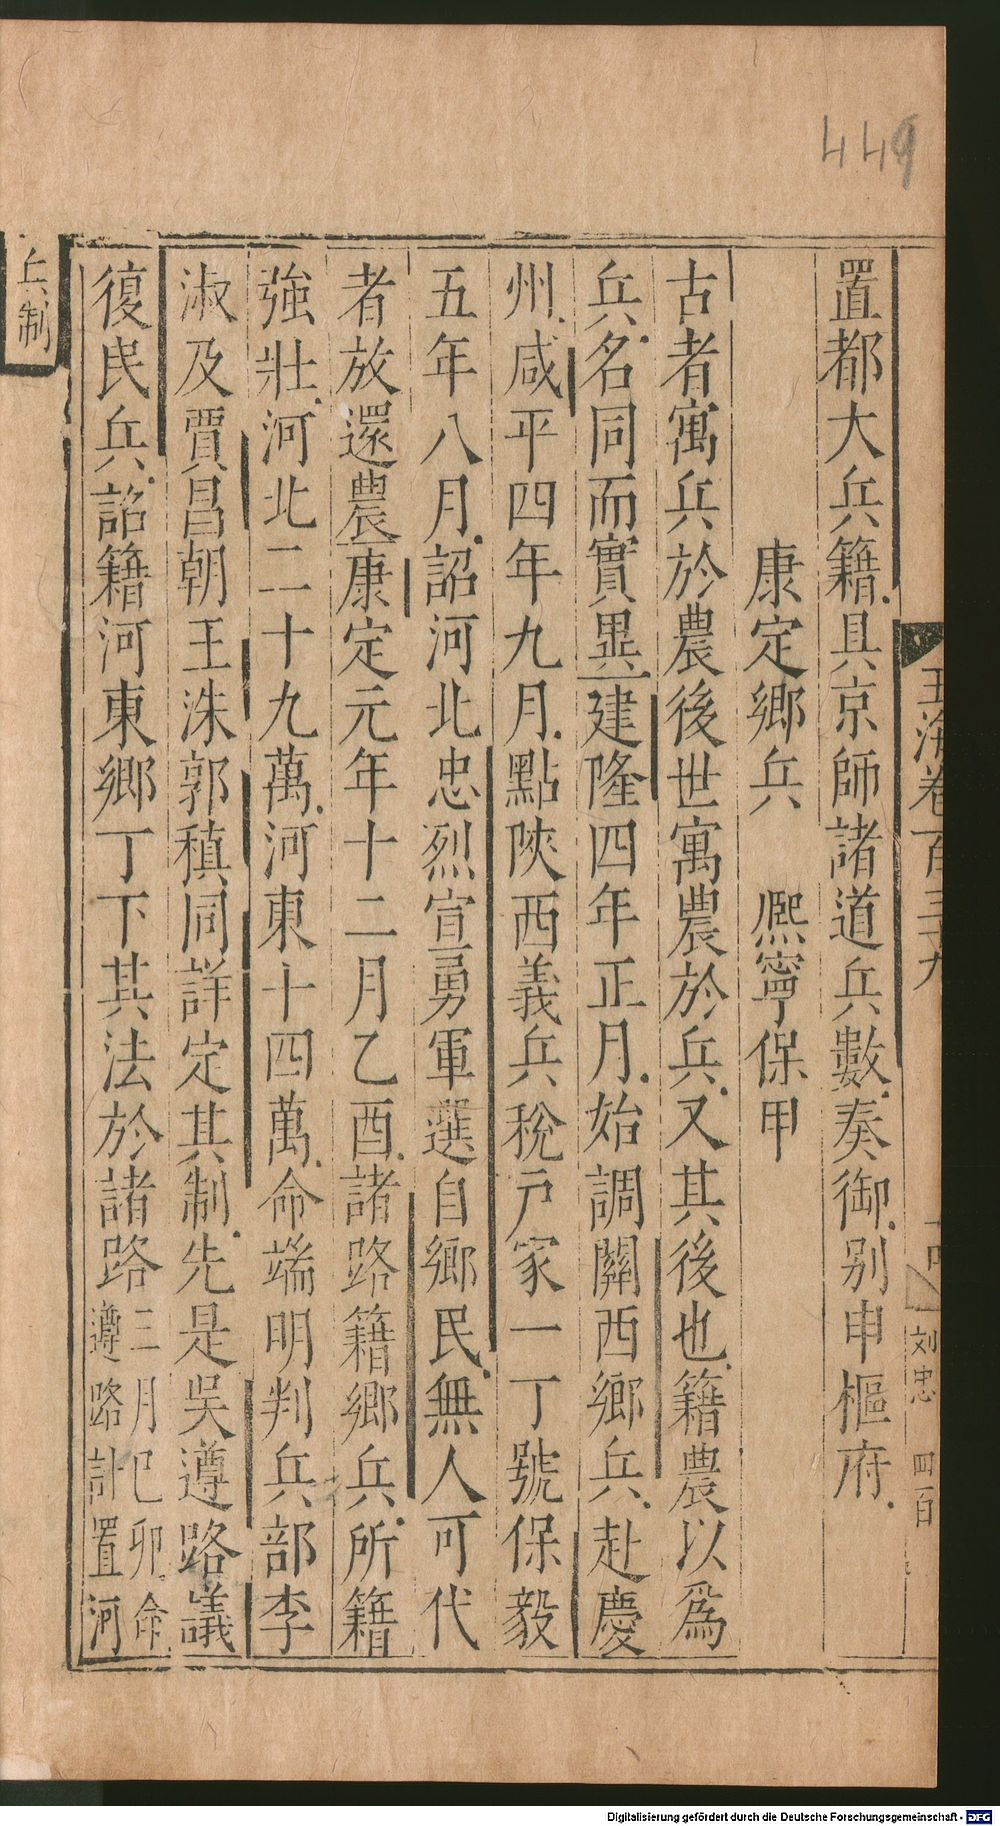 449
置都大兵籍具京師諸道兵數奏御别申樞府
康定鄉兵 熈寧保甲
古者寓兵於農後世寓農於兵又其後也籍農以爲
兵名同而實異建隆四年正月始調關西鄉兵赴慶
州咸平四年九月點陜西義兵稅戸家一丁號保毅
五年八月詔河北忠烈宣勇軍選自鄉民無人可代
者放還農康定元年十二月乙酉諸路籍鄉兵所籍
強壯河北二十九萬河東十四萬命端明判兵部李
淑及賈昌朝王洙郭稹同詳定其制先是吳遵路議
復民兵詔籍河東鄉丁下其法於諸路三月巳卯命
遵路計置河
兵制
玉海卷一百三十九
刘忠
四百
Digitalisierung gefördert durch die Deutsche Forschungsgemeinschaft - DFG